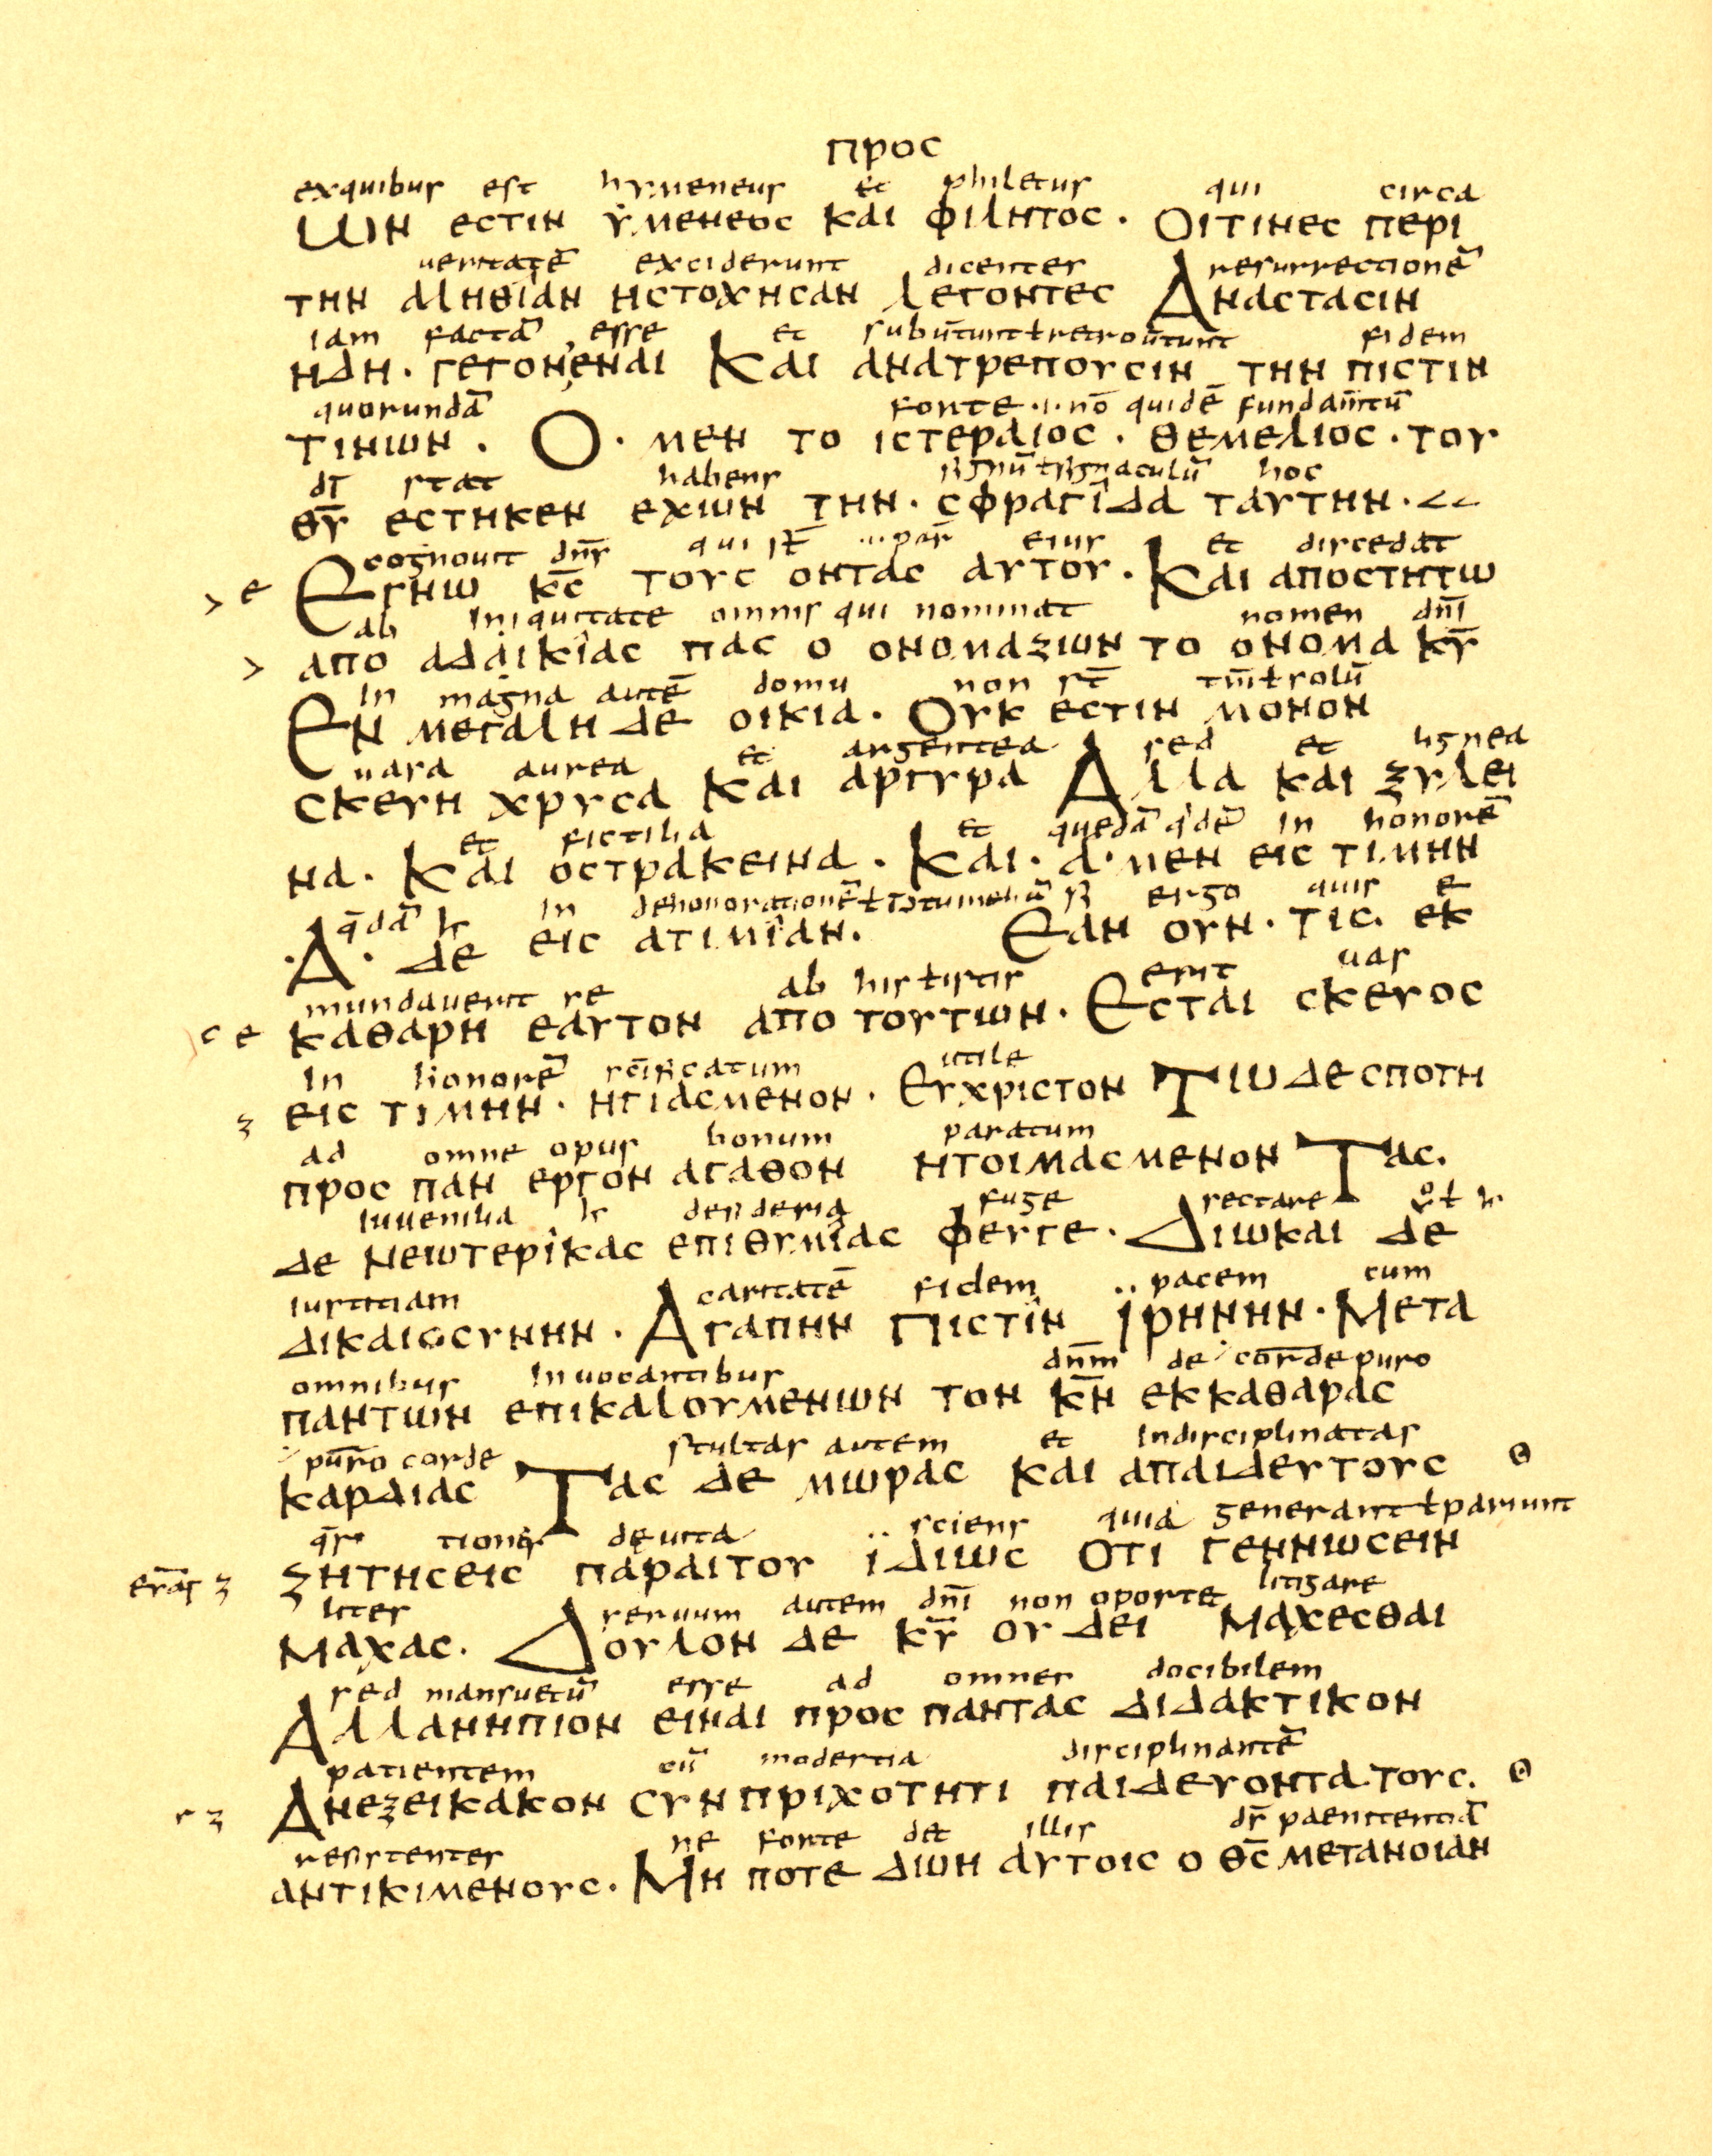 προс
exquibus est hymeneus et philetus qui circa
ωΝ εстιΝ ΥμεΝεос Και ΦιλΗτос · ΟιτιΝεс περι
ueritatē exciderunt dicentes resurrectionē
τΗΝ αλΗθιαΝ ΗстοχΗсαΝ λεγοΝτεс ΑΝαсταсιΝ
iam factā esse et subūtunt ł retroūtunt fidem
ΗδΗ · γεγοΝεΝαι Και αΝατρεπουсιΝ τΗΝ πιсτιΝ
quorundā fonte quidē fundam̄tū
τιΝωΝ · Ο · μεΝ το ιсτεραιοс · θεμελιοс · του
dī stat habens signū ł signaculū hoc
θῡ εсτΗκεΝ εχιωΝ τΗΝ · сφραγιδα ταυτΗΝ ·
cognouit dn̄s qui st̄ eius et discedat
> e ΕγΝω κ̄с τουс οΝταс αυτου · Και αποсτΗτω
ab iniquitate omnis qui nominat nomen dn̄i
> απο αδαικιαс παс ο οΝομαζιωΝ το οΝομα κῡ
in magna autē domu non st̄ tm̄ ł solū
ΕΝ μεγαλΗ δε οικια · Ουκ εсτιΝ μοΝοΝ
uasa aurea et argentea sed et lignea
сκευΗ χρυсα Και αργυρα Αλλα και ξυλει
et fictilia et quedā qdē in honorē
Να · Και οсτρακειΝα · Και · α · μεΝ ειс τιμΗΝ
q̄dā in dehonorationē ł si ergo quis e
· Α · δε ειс ατιμιαΝ · ΕαΝ ουΝ · τιс · εκ
mundauerit se ab his ł istis erit uas
с e καθαρΗ εαυτοΝ απο τουτιωΝ · Εсται сκευοс
in honorē sc̄ificatum utile
ζ ειс τιμΗΝ · ΗγιαсμεΝοΝ · ΕυχριсτοΝ ΤιωδεсποτΗ
ad omne opus bonum paratum
προс παΝ εργοΝ αγαθοΝ ΗτοιμαсμεΝοΝ Ταс ·
iuuenilia desideria fuge sectare
δε Νεωτερικαс επιθυμιαс φευγε · Διωκαι δε
iustitiam caritatē fidem pacem cum
δικαιοсυΝΗΝ · ΑγαπΗΝ ΠιсτιΝ ΪρΗΝΗΝ · Μετα
omnibus inuocantibus dn̄m de corde puro
παΝτωΝ επικαλουμεΝιωΝ τοΝ κ̄Ν εκκαθαραс
puro corde stultas autem et indisciplinatas
καρδιαс Ταс δε μωραс και απαιδευτουс Θ
q̄s tiones deuita sciens quia generant ł pariunt
ζ ζΗτΗсειс παραιτου ϊδιωс Οτι γεΝΝιωсειΝ
lites seruum autem dn̄i non oportet litigare
μαχαс · ΔουλοΝ δε κῡ ου δει μαχεсθαι
sed mansuetū esse ad omnes docibilem
ΑλλαΝΗπιοΝ ειΝαι προс παΝταс διδακτικοΝ
patientem cū modestia disciplinantē
r ζ ΑΝεξεικακοΝ сυΝ πριχοτΗτι παιδευοΝτα · τουс · Θ
resistentes ne forte det illis ds̄ paenitentiā
αΝτικιμεΝουс · ΜΗ ποτε διωΗ αυτοιс ο θ̄с μεταΝοιαΝ